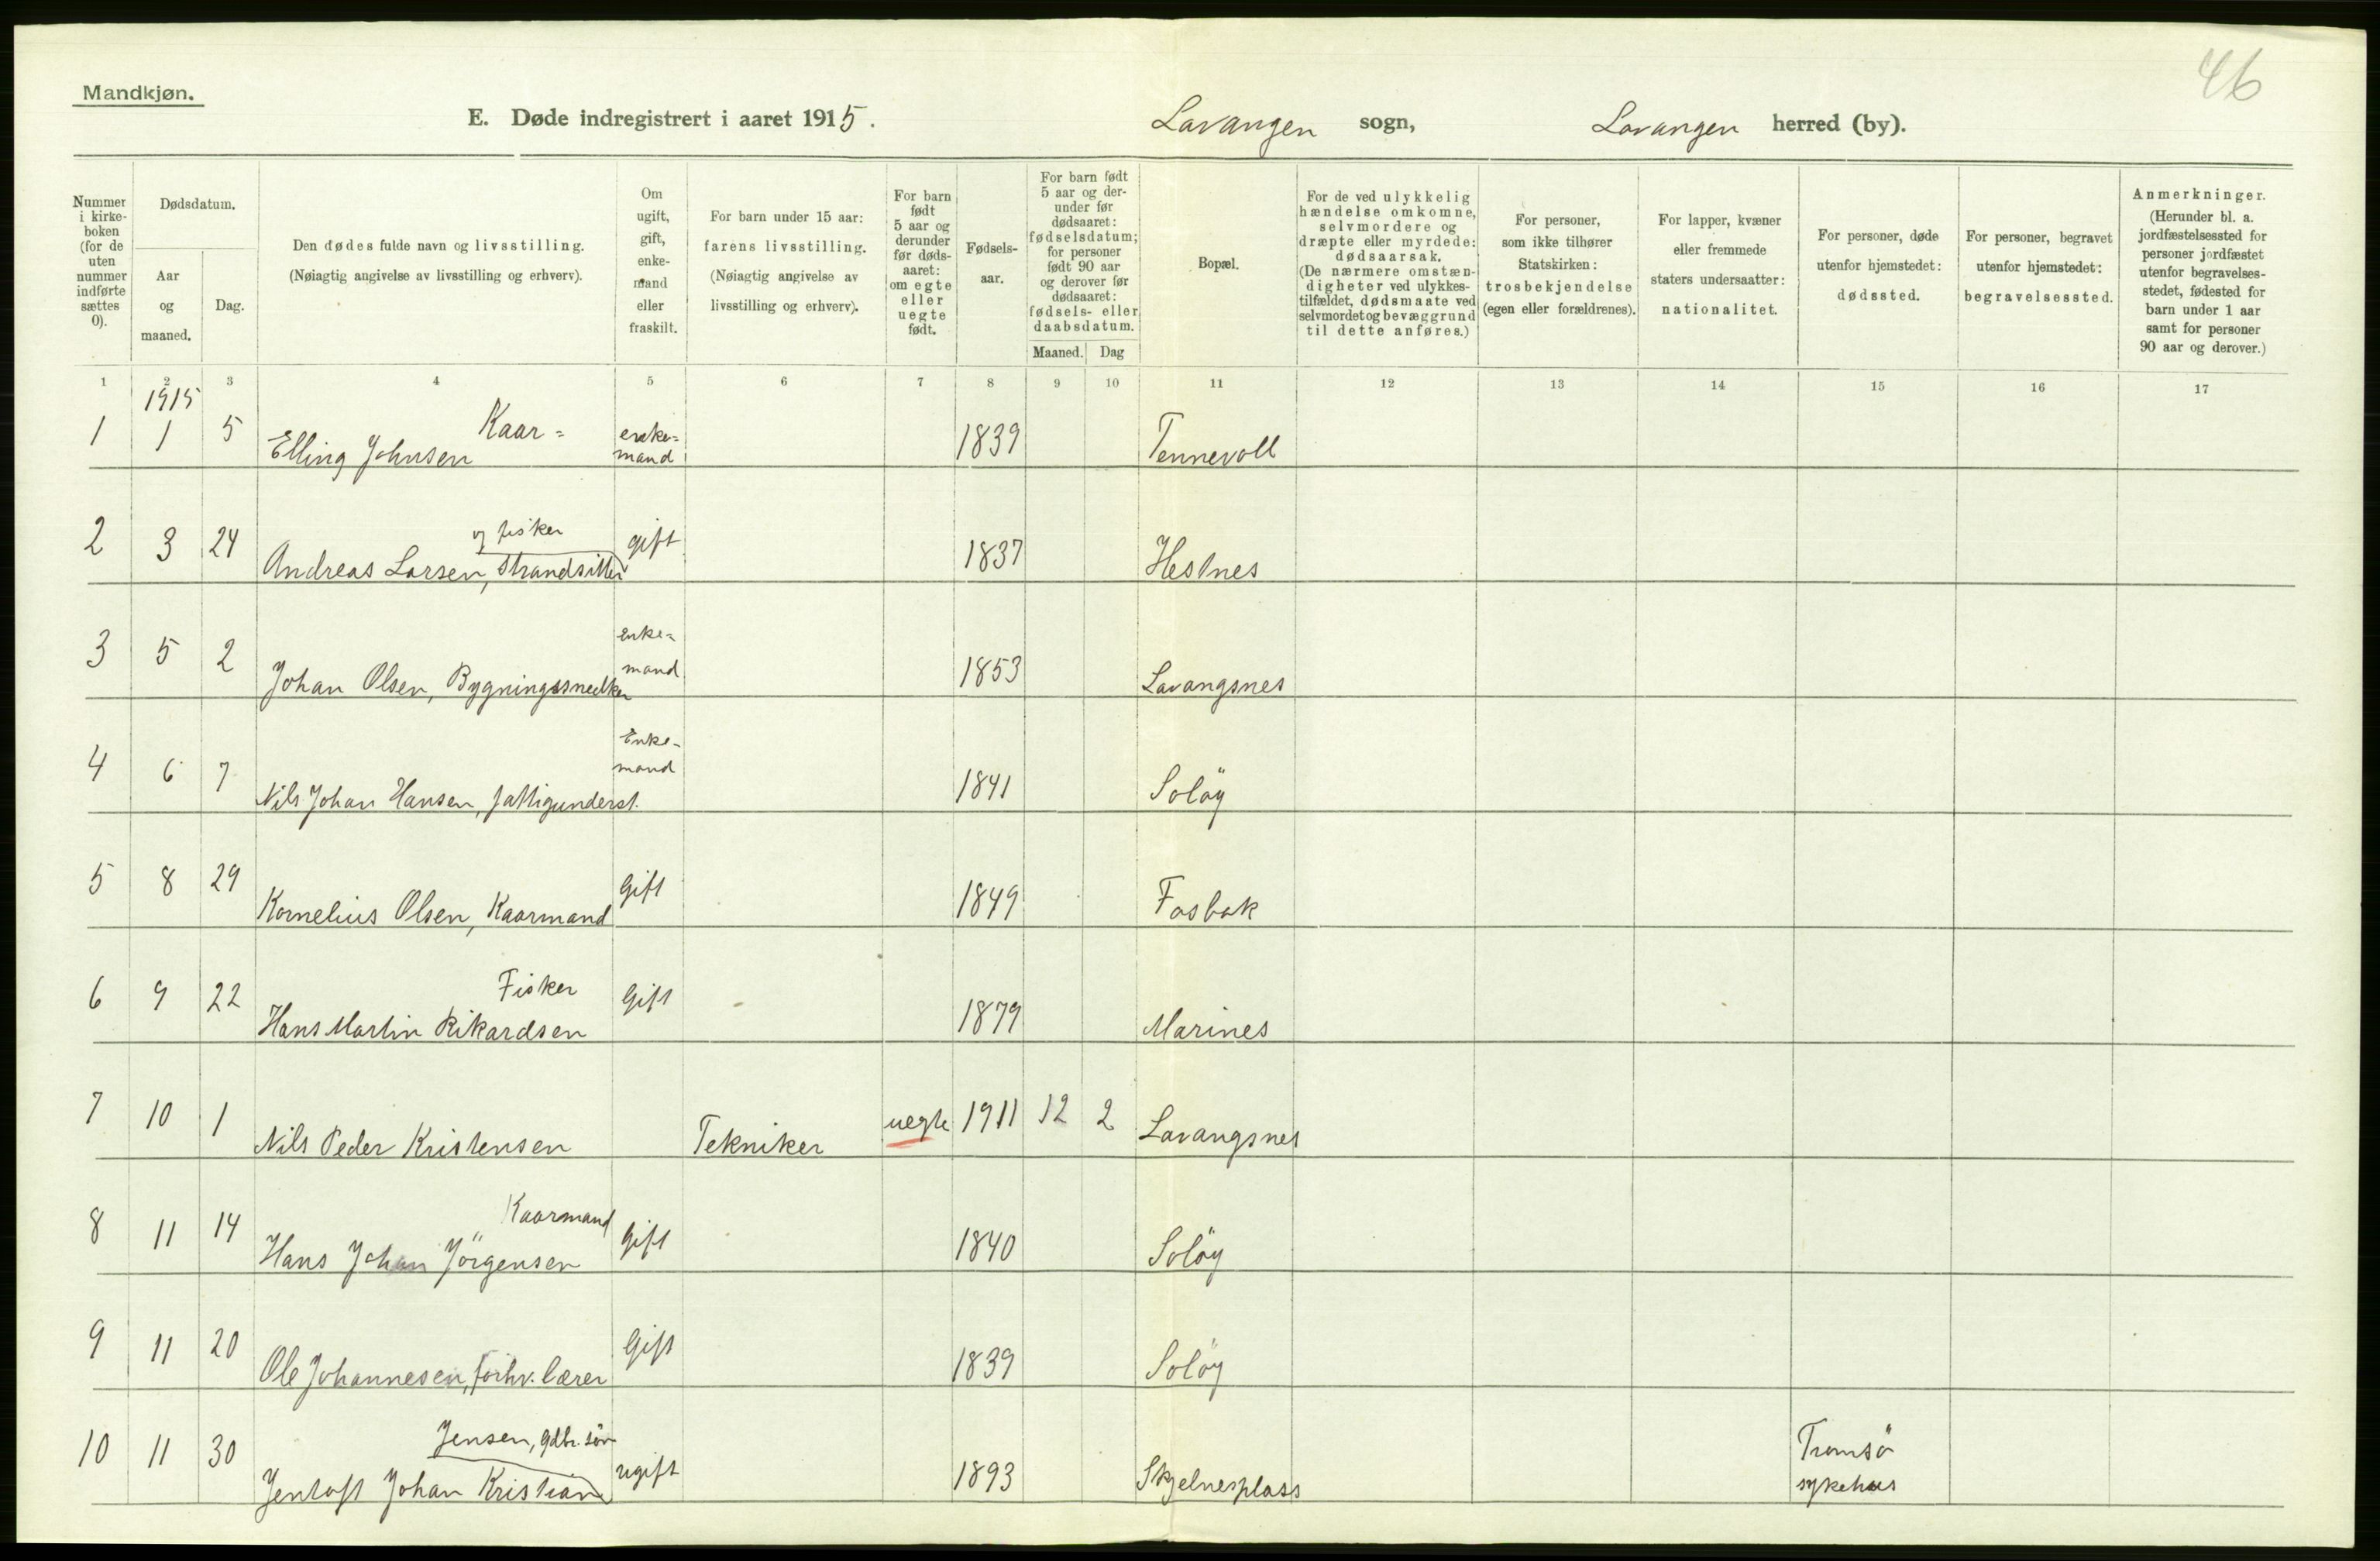 46
Mandkjøn.
E. Døde indregistrert i aaret 1915. Lavangen sogn, Lavangen herred (by).
Nummer i kirke-boken (for de uten nummer indførte sættes 0).
Dødsdatum.
Aar og maaned.
Dag.
Den dødes fulde navn og livsstilling.
(Nøiagtig angivelse av livsstilling og erhverv).
Om ugift, gift, enke-mand eller fraskilt.
For barn under 15 aar: farens livsstilling.
(Nøiagtig angivelse av livsstilling og erhverv).
For barn født 5 aar og derunder før døds-aaret: om egte eller uegte født.
Fødsels-aar.
For barn født 5 aar og der-under før dødsaaret: fødselsdatum; for personer født 90 aar og derover før dødsaaret: fødsels- eller daabsdatum.
Maaned. Dag
Bopæl.
For de ved ulykkelig hændelse omkomne, selvmordere og dræpte eller myrdede: dødsaarsak.
(De nærmere omstæn-digheter ved ulykkes-tilfældet, dødsmaate ved selvmordet og bevæggrund til dette anføres.)
For personer, som ikke tilhører Statskirken: trosbekjendelse (egen eller forældrenes).
For lapper, kvæner eller fremmede staters undersaatter: nationalitet.
For personer, døde utenfor hjemstedet: dødssted.
For personer, begravet utenfor hjemstedet: begravelsessted.
Anmerkninger.
(Herunder bl. a. jordfæstelsessted for personer jordfæstet utenfor begravelses-stedet, fødested for barn under 1 aar samt for personer 90 aar og derover.)
1 2 3 4 5 6 7 8 9 10 11 12 13 14 15 16 17
1915
1 1 5 Elling Johnsen Kaar= enke=mand 1839 Tennevoll
2 3 24 Andreas Larsen, strandsitter og fisker gift 1837 Hestnes
3 5 2 Johan Olsen, Bygningssnedker enke=mand 1853 Lavangsnes
4 6 7 Nils Johan Hansen, fattigunderst. Enke-mand 1841 Soløy
5 8 29 Kornelius Olsen, Kaarmand Gift 1849 Fosbak
6 9 22 Hans Martin Rikardsen Fisker Gift 1879 Marines
7 10 1 Nils Peder Kristensen Tekniker uegte 1911 12 2 Lavangsnes
8 11 14 Hans Johan Jörgensen Kaarmand Gift 1840 Solöy
9 11 20 Ole Johannesen, forhv. lærer Gift 1839 Solöy
10 11 30 Jentoft Johan Kristian Jensen, gdbr. sön ugift 1893 Skjelnesplass Tromsö sykehus